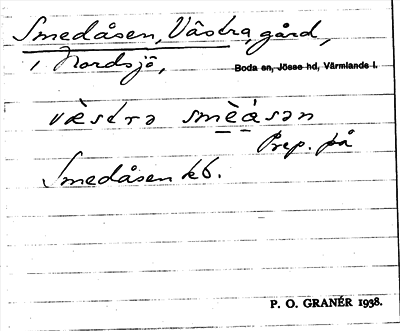 Smedåsen, Västra, gård,
i Nordsjö, Boda sn, Jösse hd, Värmlands l.
væ̀stra smè̱à̱sən
Prep. på
Smedåsen kb.
P. O. GRANÉR 1938.